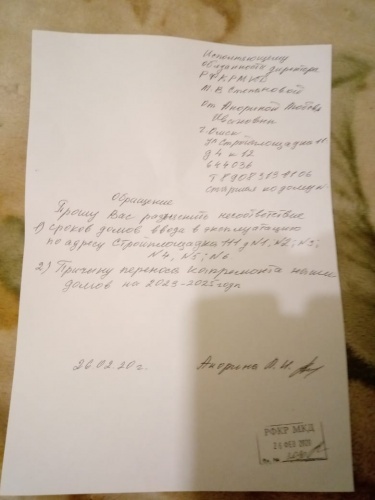 Исполняющему
обязанности директора
РФКРМКД
М.В. Степановой
от Акориной Любови
Ивановны
г. Омск
ул Стройплощадка
д 4 к 12
644036
т 8908 313 1106
старшая по дому
Обращение
Прошу Вас разъяснить несоответствие
1) сроков домов ввода в эксплуатацию
по адресу Стройплощадка д №1, №2; №3;
№4, №5; №6
2) Причину переноса капремонта наших
домов на 2023-2025 годы
26.02.20 г. Акорина Л.И.
РФКР МКД
26 ФЕВ 2020